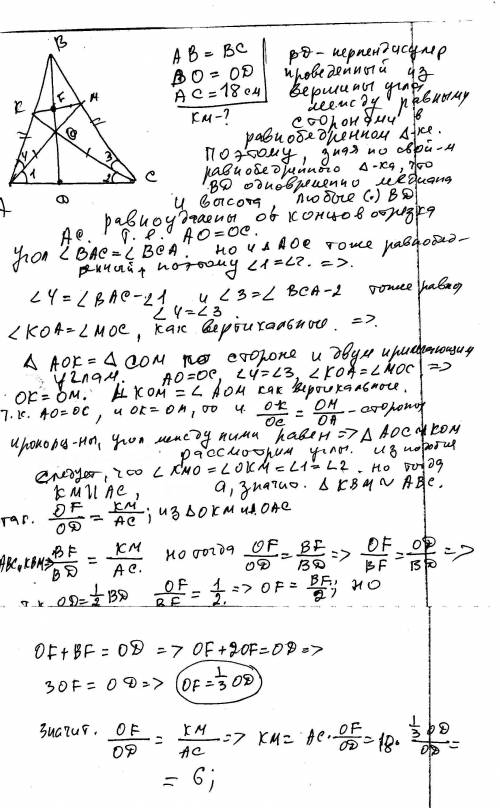 B
K
F
M
O
4
3
1
2
A
C
D
AB = BC
BO = OD
AC = 18 см
KM - ?
BD - перпендикуляр
проведенный из
вершины угла
между равными
сторонами в
равнобедренном Δ-ке.
Поэтому, зная по свой-м
равнобедренного Δ-ка, что
BD одновременно медиана
и высота, любые (·) BD
равноудалены от концов отрезка
AC. Т.е. AO = OC.
угол ∠BAC = ∠BCA. но и Δ AOC тоже равнобед-
ренный, поэтому ∠1 = ∠2. =>.
∠4 = ∠BAC - ∠1 и ∠3 = ∠BCA - 2 тоже равны
∠4 = ∠3
∠KOA = ∠MOC, как вертикальные. =>.
Δ AOK = Δ COM по стороне и двум прилегающим
углам. AO = OC, ∠4 = ∠3, ∠KOA = ∠MOC =>
OK = OM. ∠KOM = ∠AOM как вертикальные.
т.к. AO = OC, и OK = OM, то и OK/OC = OM/OA - стороны
пропорц-ны, угол между ними равен => Δ AOC ~ KOM
рассмотрим углы. из подобия
следует, что ∠KMO = ∠OKM = ∠1 = ∠2. но тогда
KM || AC, а, значит. Δ KBM ~ ABC.
OF/OD = KM/AC; из Δ OKM и Δ OAC
ABC и KBM => BF/BD = KM/AC. но тогда OF/OD = BF/BD => OF/BF = OD/BD =>
т.к. OD = 1/2 BD OF/BF = 1/2. => OF = BF/2; но
OF + BF = OD => OF + 2OF = OD =>
3OF = OD => OF = 1/3 OD
значит. OF/OD = KM/AC => KM = AC · OF/OD = 18 · 1/3 OD/OD =
= 6;